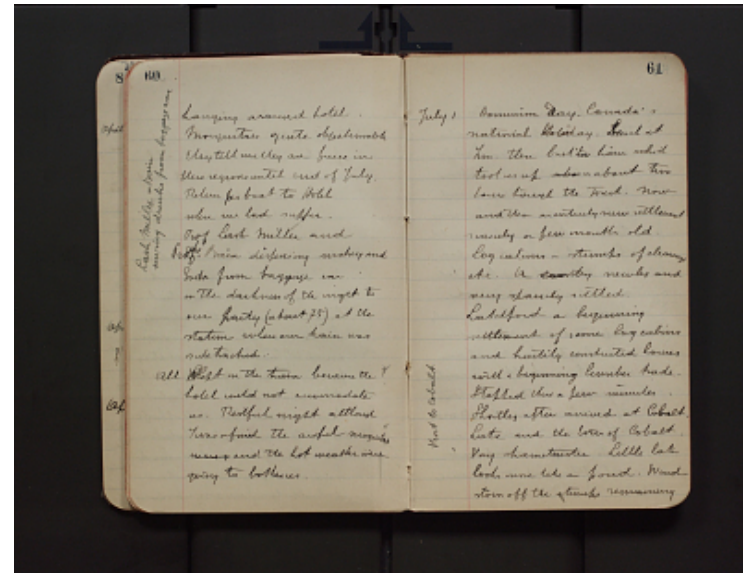 8
60
April
Lash Miller & Bain
serving drinks from baggage car
Lounging around hotel.
Mosquitoes quite objectionable
They tell us they are fierce in
these regions until end of July.
Return by boat to Hotel
where we had supper.
Prof Lash Miller and
Prof. Bain dispensing whiskey and
Soda from baggage car
in the darkness of the night to
our party (about 75) at the
station where our train was
side tracked.
All slept in the train because the
hotel could not accommodate
us. Restful night although
I was afraid the awful mosquitoes
and the hot weather were
going to bother us.
61
July 1
Dominion Day. Canada's
national Holiday. Lunch at
then
took us up about two
hours through the forest. Now
and then an entirely new settlement
merely a few months old.
Log cabins - stumps of clearing
etc. A country newly and
very sparsely settled.
Latchford a beginning
settlement of some log cabins
and hastily constructed houses
with a beginning lumber trade.
Stopped there a few minutes.
Shortly after arrived at Cobalt.
Visit to Cobalt
Lake and the town of Cobalt.
Very characteristic. Little lake
looks more like a pond. Wood
torn off the stumps remaining